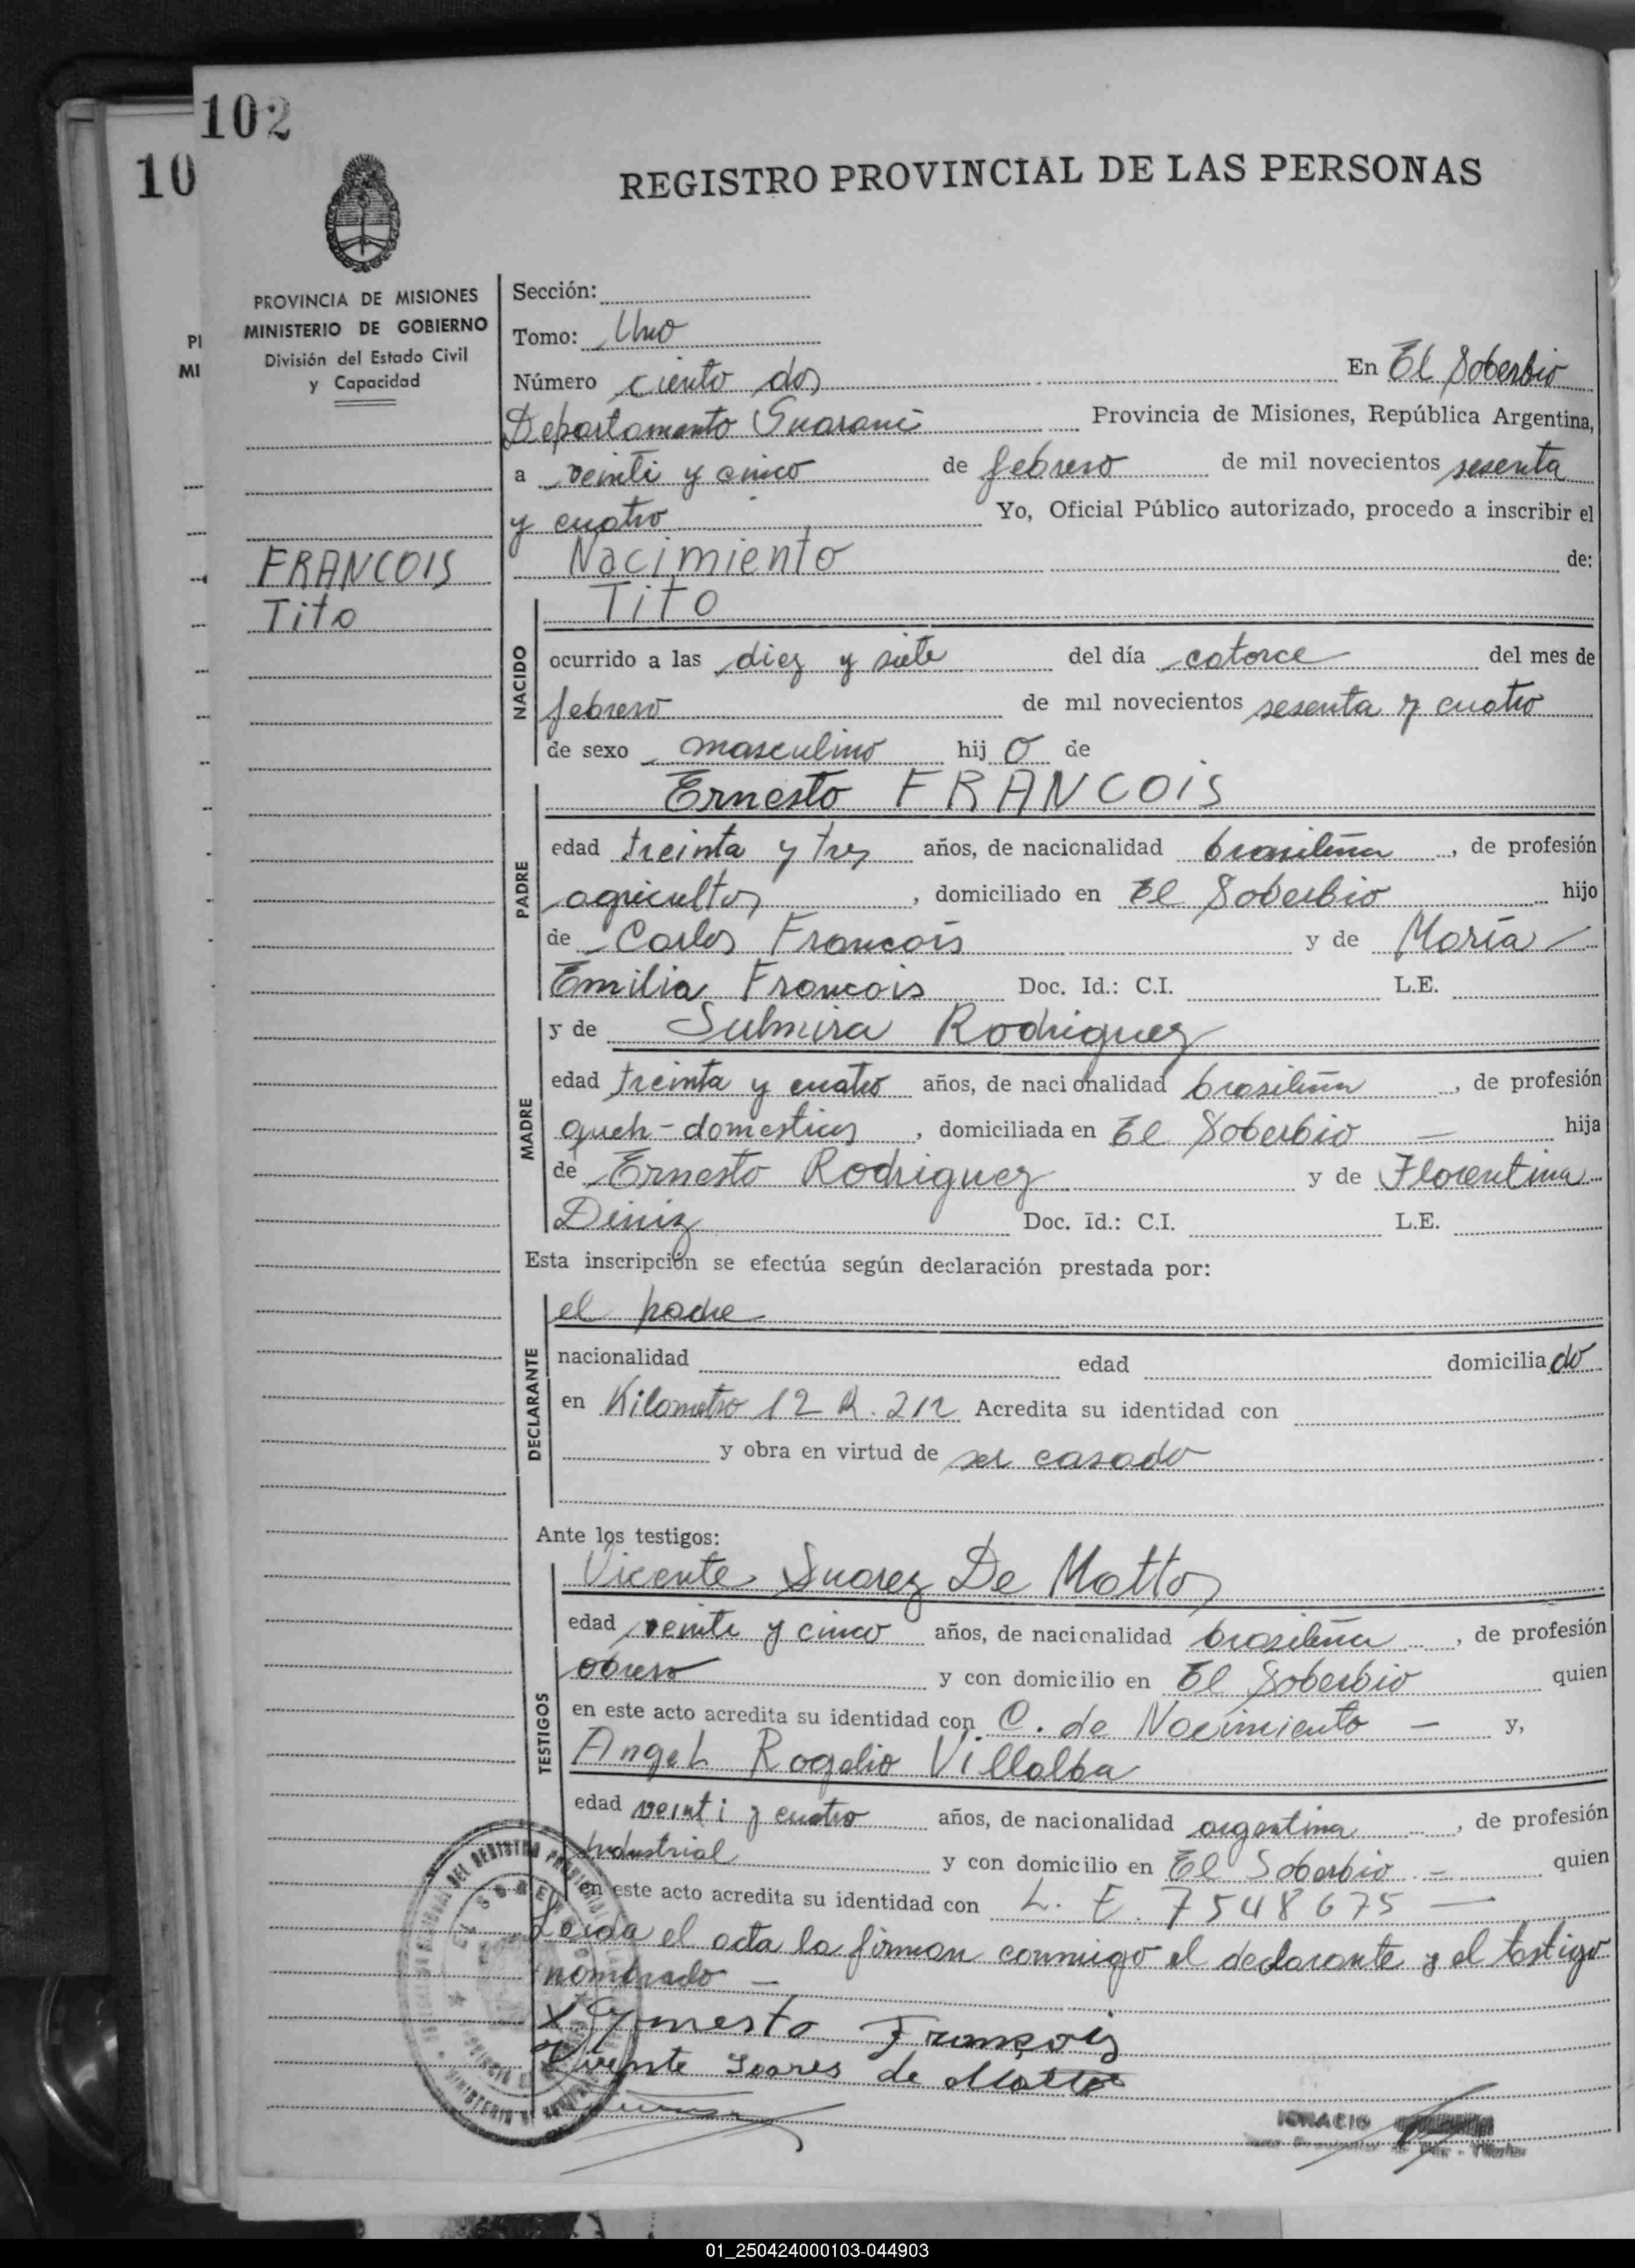 102
10
REGISTRO PROVINCIAL DE LAS PERSONAS
PROVINCIA DE MISIONES
MINISTERIO DE GOBIERNO
División del Estado Civil
y Capacidad
PI
MI
FRANCOIS
Tito
Sección:
Tomo: Uno
Número ciento dos En El Soberbio
Departamento Guaraní Provincia de Misiones, República Argentina,
a veinti y cinco de febrero de mil novecientos sesenta
y cuatro Yo, Oficial Público autorizado, procedo a inscribir el
Nacimiento de:
NACIDO
Tito
ocurrido a las diez y siete del día catorce del mes de
febrero de mil novecientos sesenta y cuatro
de sexo masculino hijo de
PADRE
Ernesto FRANCOIS
edad treinta y tres años, de nacionalidad brasileña, de profesión
agricultor, domiciliado en El Soberbio hijo
de Carlos Francois y de María
Emilia Francois Doc. Id.: C.I. L.E.
MADRE
y de Sulmira Rodriguez
edad treinta y cuatro años, de nacionalidad brasileña, de profesión
queh-domesticos, domiciliada en El Soberbio — hija
de Ernesto Rodriguez y de Florentina
Diniz Doc. Id.: C.I. L.E.
Esta inscripción se efectúa según declaración prestada por:
DECLARANTE
el padre
nacionalidad edad domiciliado
en Kilometro 12 R. 212 Acredita su identidad con
y obra en virtud de ser casado
Ante los testigos:
TESTIGOS
Vicente Suarez De Mattos
edad veinte y cinco años, de nacionalidad brasileña, de profesión
obrero y con domicilio en El Soberbio quien
en este acto acredita su identidad con C. de Nacimiento — y,
Angel Rogelio Villalba
edad veinti y cuatro años, de nacionalidad argentina, de profesión
Industrial y con domicilio en El Soberbio — quien
en este acto acredita su identidad con L. E. 7548675 —
Leida el acta la firman conmigo el declarante y el testigo
nombrado —
X Ernesto François
Vicente Soares de Mattos
IGNACIO
01_250424000103-044903